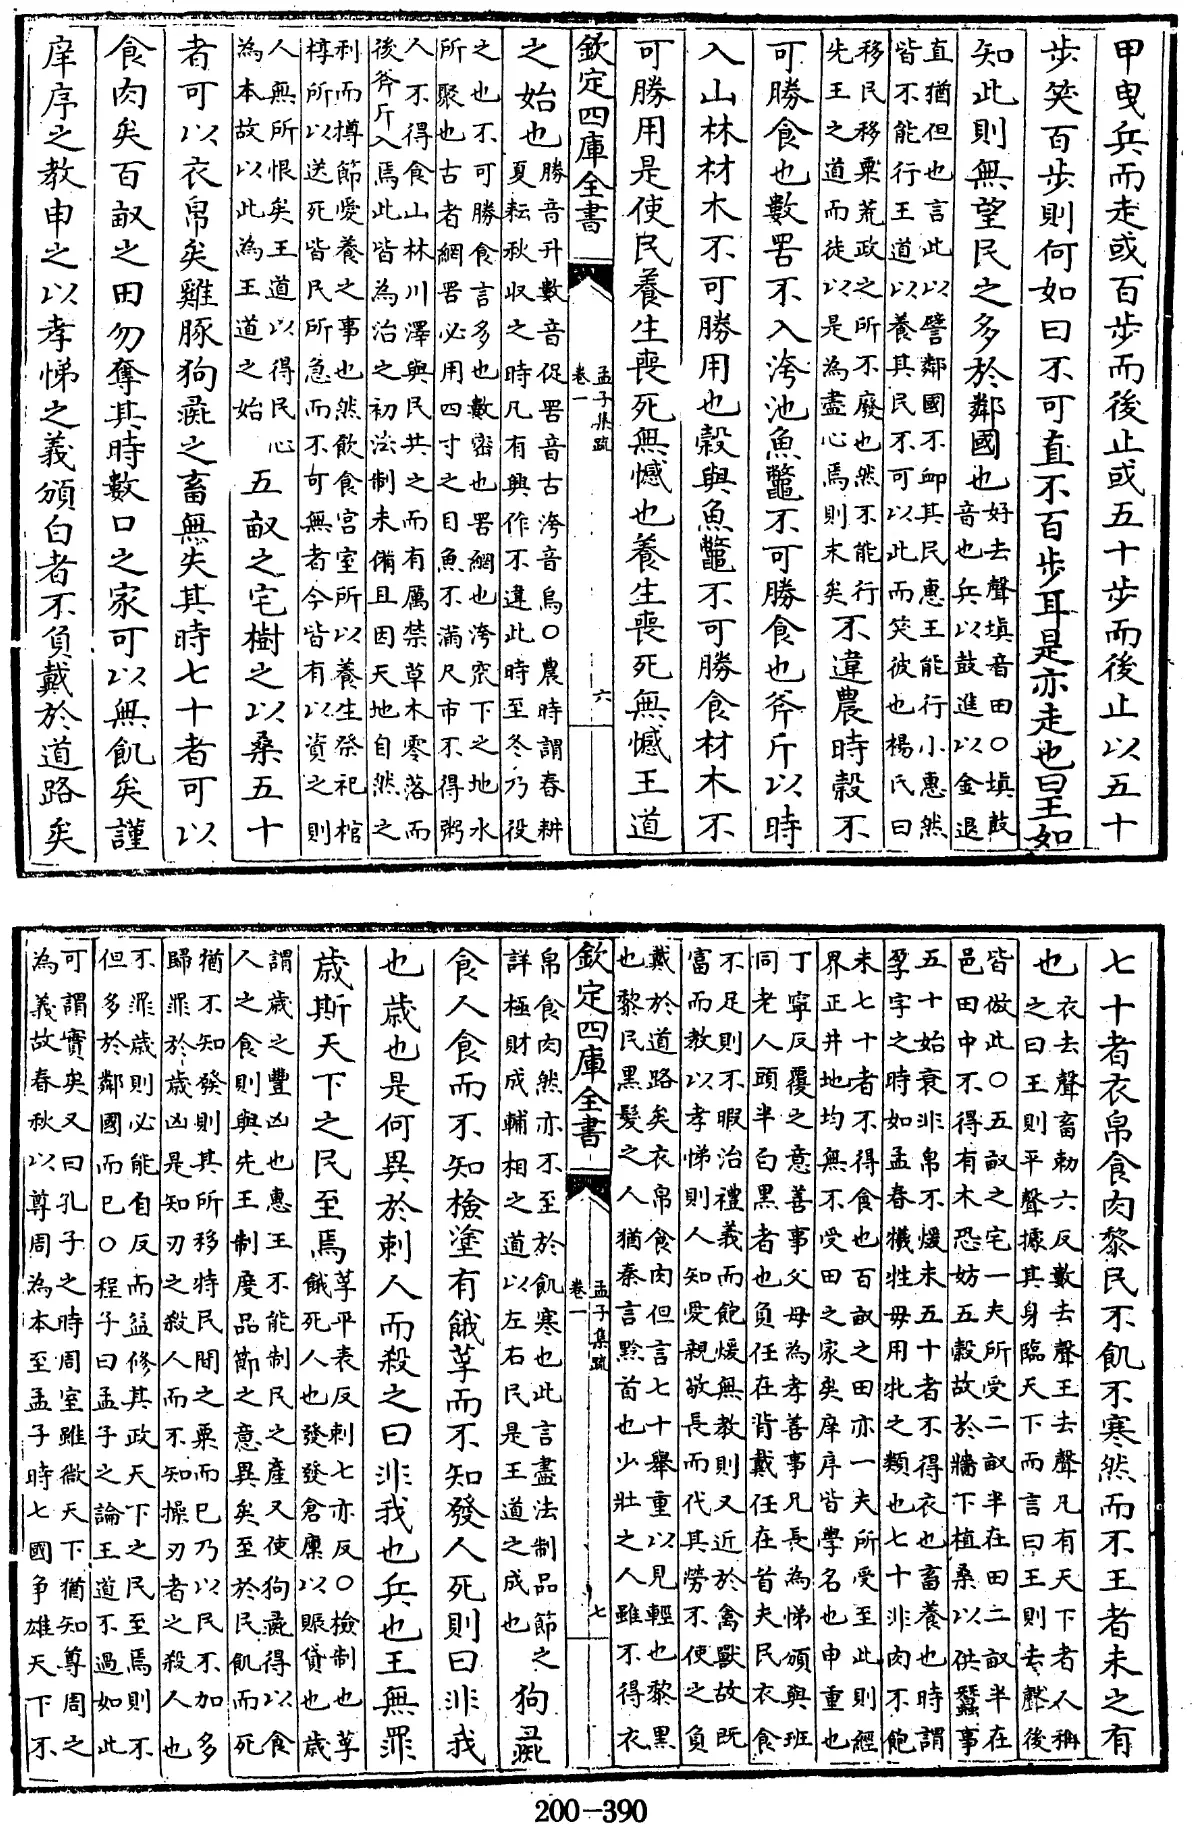 甲曳兵而走或百步而後止或五十步而後止以五十
步笑百步則何如曰不可直不百步耳是亦走也曰王如
知此則無望民之多於鄰國也
好去聲填音田○填鼓
音也兵以鼓進以金退
直猶但也言此以譬鄰國不䘏其民惠王能行小惠然
皆不能行王道以養其民不可以此而笑彼也楊氏曰
移民移粟荒政之所不廢也然不能行
先王之道而徒以是為盡心焉則末矣
不違農時穀不
可勝食也數罟不入洿池魚鼈不可勝食也斧斤以時
入山林材木不可勝用也穀與魚鼈不可勝食材木不
可勝用是使民養生喪死無憾也養生喪死無憾王道
欽定四庫全書
孟子集疏
卷一
六
之始也
勝音升數音促罟音古洿音烏○農時謂春耕
夏耘秋收之時凡有興作不違此時至冬乃役
之也不可勝食言多也數密也罟網也洿窊下之地水
所聚也古者網罟必用四寸之目魚不滿尺市不得粥
人不得食山林川澤與民共之而有厲禁草木零落而
後斧斤入焉此皆為治之初法制未備且因天地自然之
利而撙節愛養之事也然飲食宮室所以養生祭祀棺
椁所以送死皆民所急而不可無者今皆有以資之則
人無所恨矣王道以得民心
為本故以此為王道之始
五畝之宅樹之以桑五十
者可以衣帛矣雞豚狗彘之畜無失其時七十者可以
食肉矣百畝之田勿奪其時數口之家可以無飢矣謹
庠序之教申之以孝悌之義頒白者不負戴於道路矣
七十者衣帛食肉黎民不飢不寒然而不王者未之有
也
衣去聲畜勅六反數去聲王去聲凡有天下者人稱
之曰王則平聲據其身臨天下而言曰王則去聲後
皆倣此○五畝之宅一夫所受二畝半在田二畝半在
邑田中不得有木恐妨五穀故於牆下植桑以供蠶事
五十始衰非帛不煖未五十者不得衣也畜養也時謂
孕字之時如孟春犧牲毋用牝之類也七十非肉不飽
未七十者不得食也百畝之田亦一夫所受至此則經
界正井地均無不受田之家矣庠序皆學名也申重也
丁寧反覆之意善事父母為孝善事兄長為悌頒與班
同老人頭半白黑者也負任在背戴任在首夫民衣食
不足則不暇治禮義而飽煖無教則又近於禽獸故既
富而教以孝悌則人知愛親敬長而代其勞不使之負
戴於道路矣衣帛食肉但言七十舉重以見輕也黎黑
也黎民黑髮之人猶秦言黔首也少壯之人雖不得衣
欽定四庫全書
孟子集疏
卷一
七
帛食肉然亦不至於飢寒也此言盡法制品節之
詳極財成輔相之道以左右民是王道之成也
狗彘
食人食而不知檢塗有餓莩而不知發人死則曰非我
也歲也是何異於刺人而殺之曰非我也兵也王無罪
歲斯天下之民至焉
莩平表反刺七亦反○檢制也莩
餓死人也發發倉廩以賑貸也歲
謂歲之豐凶也惠王不能制民之產又使狗彘得以食
人之食則與先王制度品節之意異矣至於民飢而死
猶不知發則其所移特民間之粟而已乃以民不加多
歸罪於歲凶是知刃之殺人而不知操刃者之殺人也
不罪歲則必能自反而益修其政天下之民至焉則不
但多於鄰國而已○程子曰孟子之論王道不過如此
可謂實矣又曰孔子之時周室雖微天下猶知尊周之
為義故春秋以尊周為本至孟子時七國争雄天下不
200-390